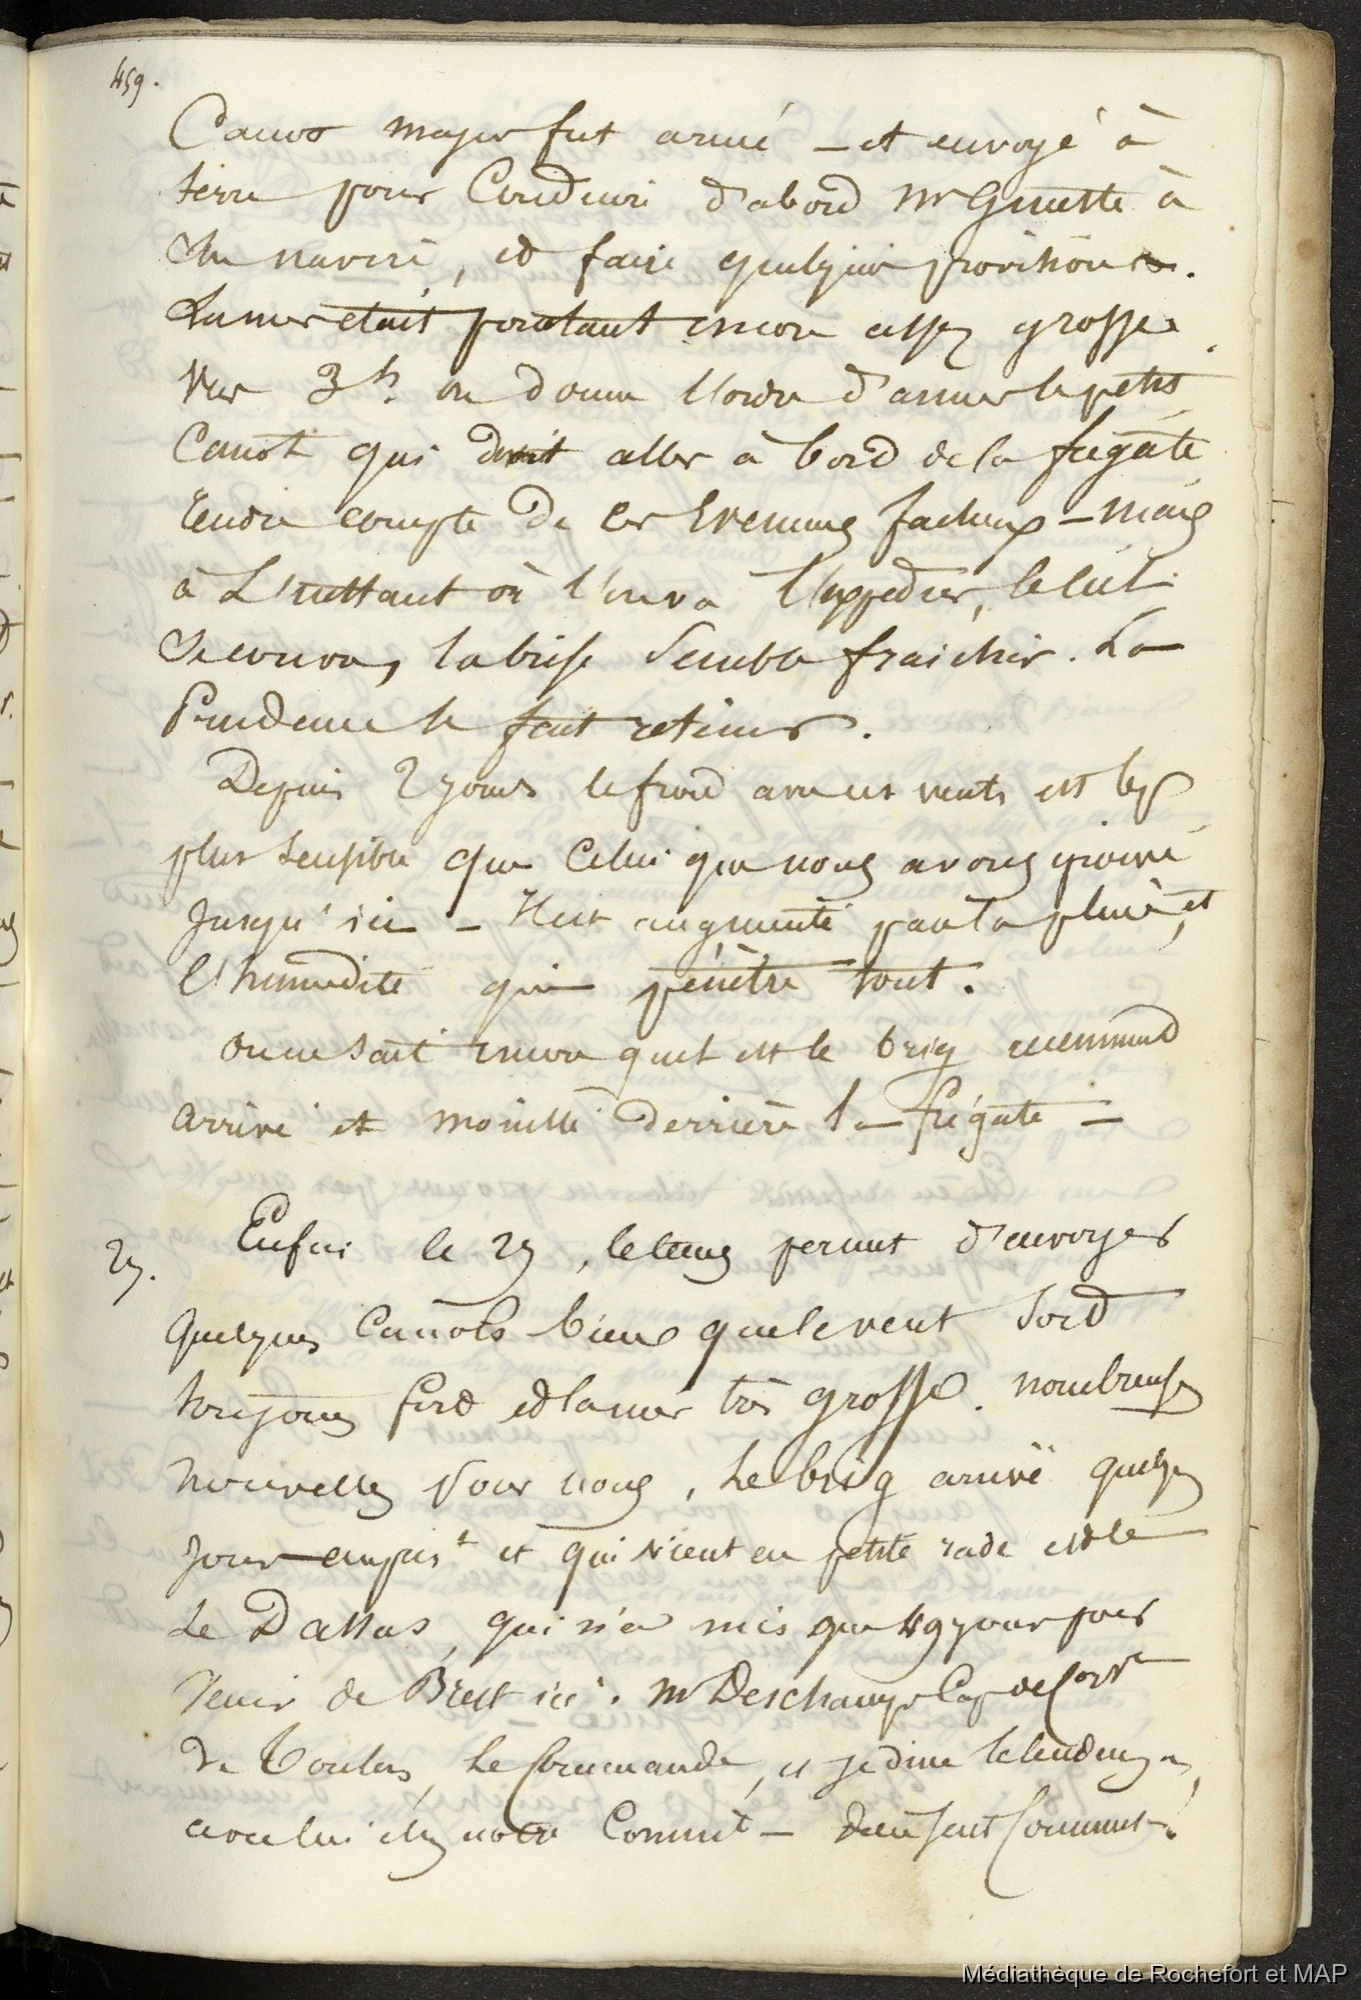 459.
Canot major fut armé – et envoyé à
terre pour Conduire d'abord Mr Ginette à
Son navire, et faire quelque provisions.
La mer était pourtant encore assez grosse.
Vers 3h. on donne l'ordre d'armer le petit
Canot qui doit aller à bord de la frégate
rendre compte de ces Evenemens facheux – mais
à L'instant où l'on va l'expédier, le ciel
Se couvre, la brise Semble fraichir. La
Prudence le fait retenir.
Depuis 2 jours le froid avec ces vents est bcp
plus sensible que Celui que nous avons éprouvé
Jusqu'ici – Il est augmenté par la pluie, et
l'humidité qui pénètre tout.
On ne Sait encore quel est le brig récemment
arrivé et mouillé derrière la frégate –
27.
Enfin le 27, le tems permit d'envoyer
Quelques Canots bien que le vent soit
toujours fort et la mer très grosse. nombreuses
nouvelles pour nous, Le brig arrivé quelques
jours auparist et qui vient en petite rade est le
Le Dassas, qui n'a mis que 49 jours pour
Venir de Brest ici. Mr Deschamps Cap de Corvte
de Toulon, Le Commande, et je dine le lendemain,
avec lui chez notre Commt –